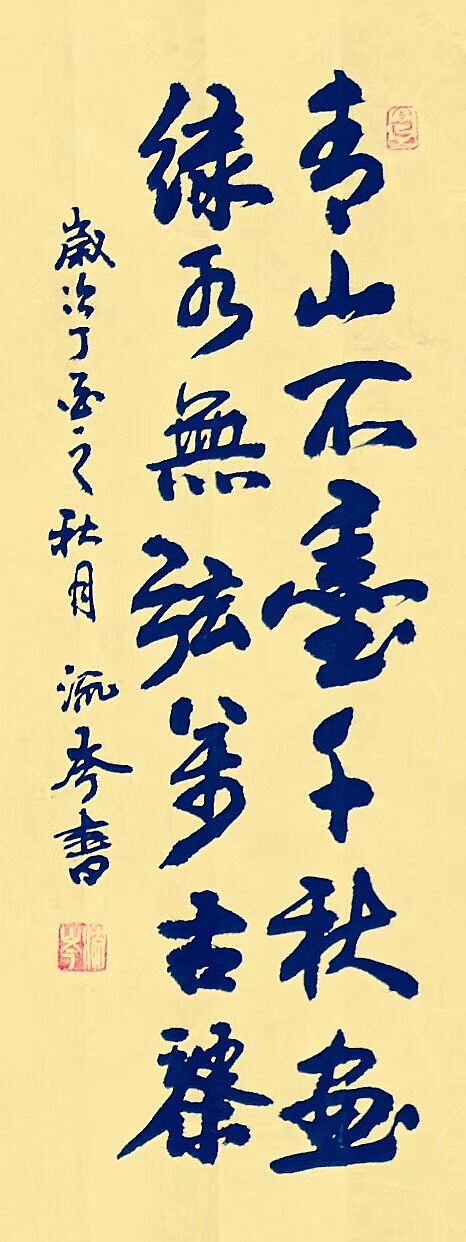 青山不墨千秋画
緑水無弦萬古琴
歲次丁酉之秋月 流岑書